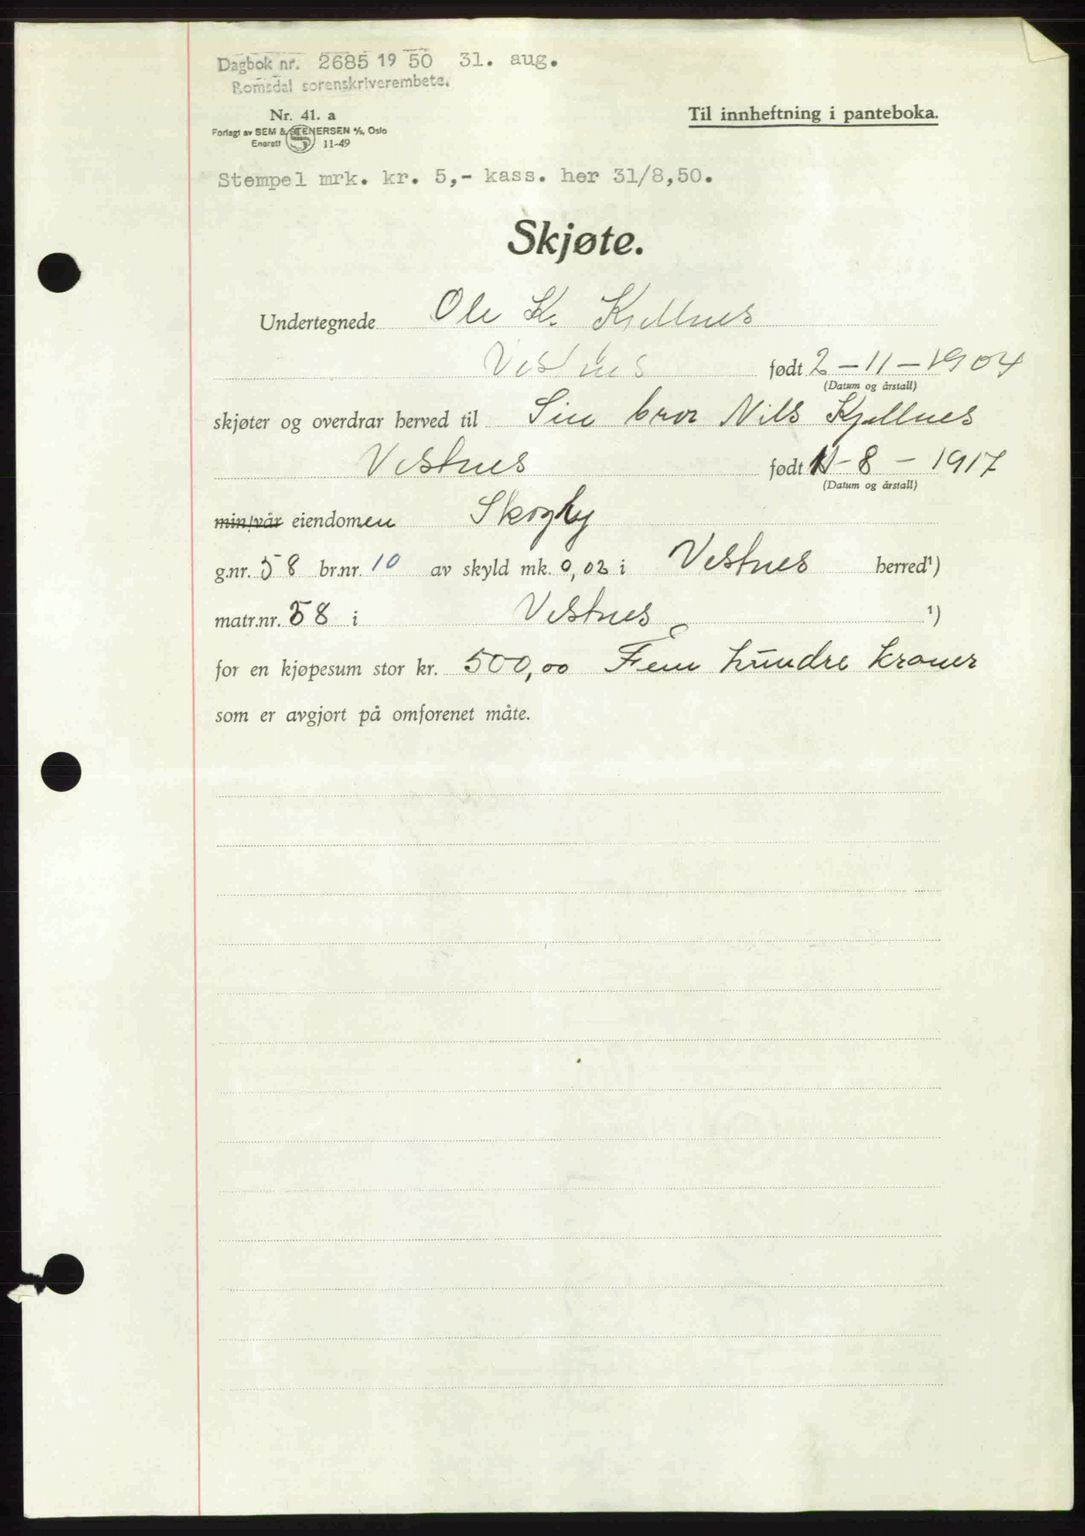 Dagbok nr. 2685 19 50 31. aug.
Romsdal sorenskriverembete.
Nr. 41. a
Til innheftning i panteboka.
Forlagt av SEM & STENERSEN A/S, Oslo
Enerett S 11-49
Stempel mrk. kr. 5,- kass. her 31/8,50.
Skjøte.
Undertegnede Ole K. Kjellnes
Vestnes født 2-11-1904
(Datum og årstall)
skjøter og overdrar herved til Sin bror Nils Kjellnes
Vestnes født 11-8-1917
(Datum og årstall)
min/vår eiendommen Skogly
g.nr. 58 br.nr. 10 av skyld mk. 0,02 i Vestnes herred¹)
matr.nr. 58 i Vestnes ¹)
for en kjøpesum stor kr. 500,00 Fem hundre kroner
som er avgjort på omforenet måte.